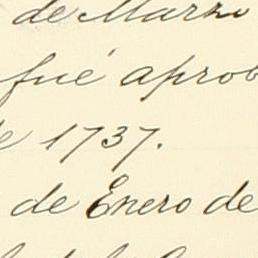 de Marzo
fué aprob
e 1737.
de Enero de